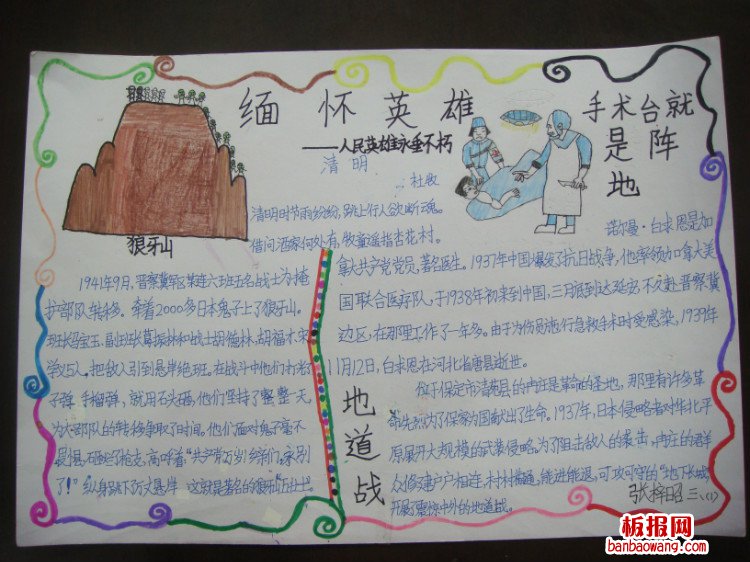 缅怀英雄
——人民英雄永垂不朽
清明
杜牧
清明时节雨纷纷,路上行人欲断魂。
借问酒家何处有,牧童遥指杏花村。
狼牙山
1941年9月,晋察冀军区某连六班五名战士为掩
护部队转移。牵着2000多日本鬼子上了狼牙山。
班长马宝玉、副班长葛振林和战士胡德林、胡福才、宋
学义5人。把敌人引到悬崖绝
子弹、手榴弹,就用石头砸,他们坚持了整整一天,
为大部队的转移争取了时间。他们面对鬼子毫不
畏惧,砸烂了枪支,高呼着"共产党万岁!乡亲们,永别
了!"纵身跳下万丈悬崖
手术台就
是阵
地
诺尔曼·白求恩是加
拿大共产党党员,著名医生。1937年中国爆发了抗日战争,他率领加拿大美
国联合医疗队,于1938年初来到中国,三月底到达延安,不久赴晋察冀
边区,在那里工作了一年多。由于为伤员施行急救手术时受感染,1939年
11月12日,白求恩在河北省唐县逝世。
地道战
位于保定市清苑县的冉庄是革命的圣地,那里有许多革
命先烈为了保家为国献出了生命。1937年,日本侵略者对华北平
原展开大规模的武装侵略。为了阻击敌人的袭击,冉庄的君群
众修建户户相连,村村相通,能进能退,可攻可守的"地下长城",
开展了震惊中外的地道战。
张梓昭 三、(1)
板报网
banbaowang.com